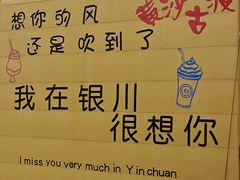 想你的风
还是吹到了
黄沙古渡
我在银川
很想你
I miss you very much in Yinchuan